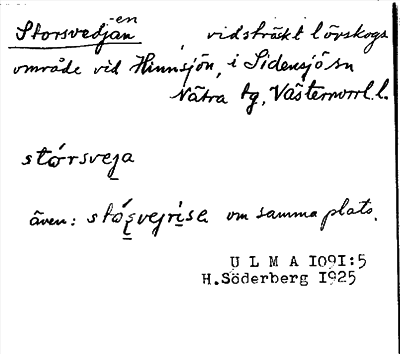 Storsvedjan -en, vidsträckt lövskogs
område vid Hinnsjön, i Sidensjö sn
Nätra tg, Västernorrl. l.
stórsveja
även: stósvejrisa om samma plats.
U L M A 1091:5
H.Söderberg 1925